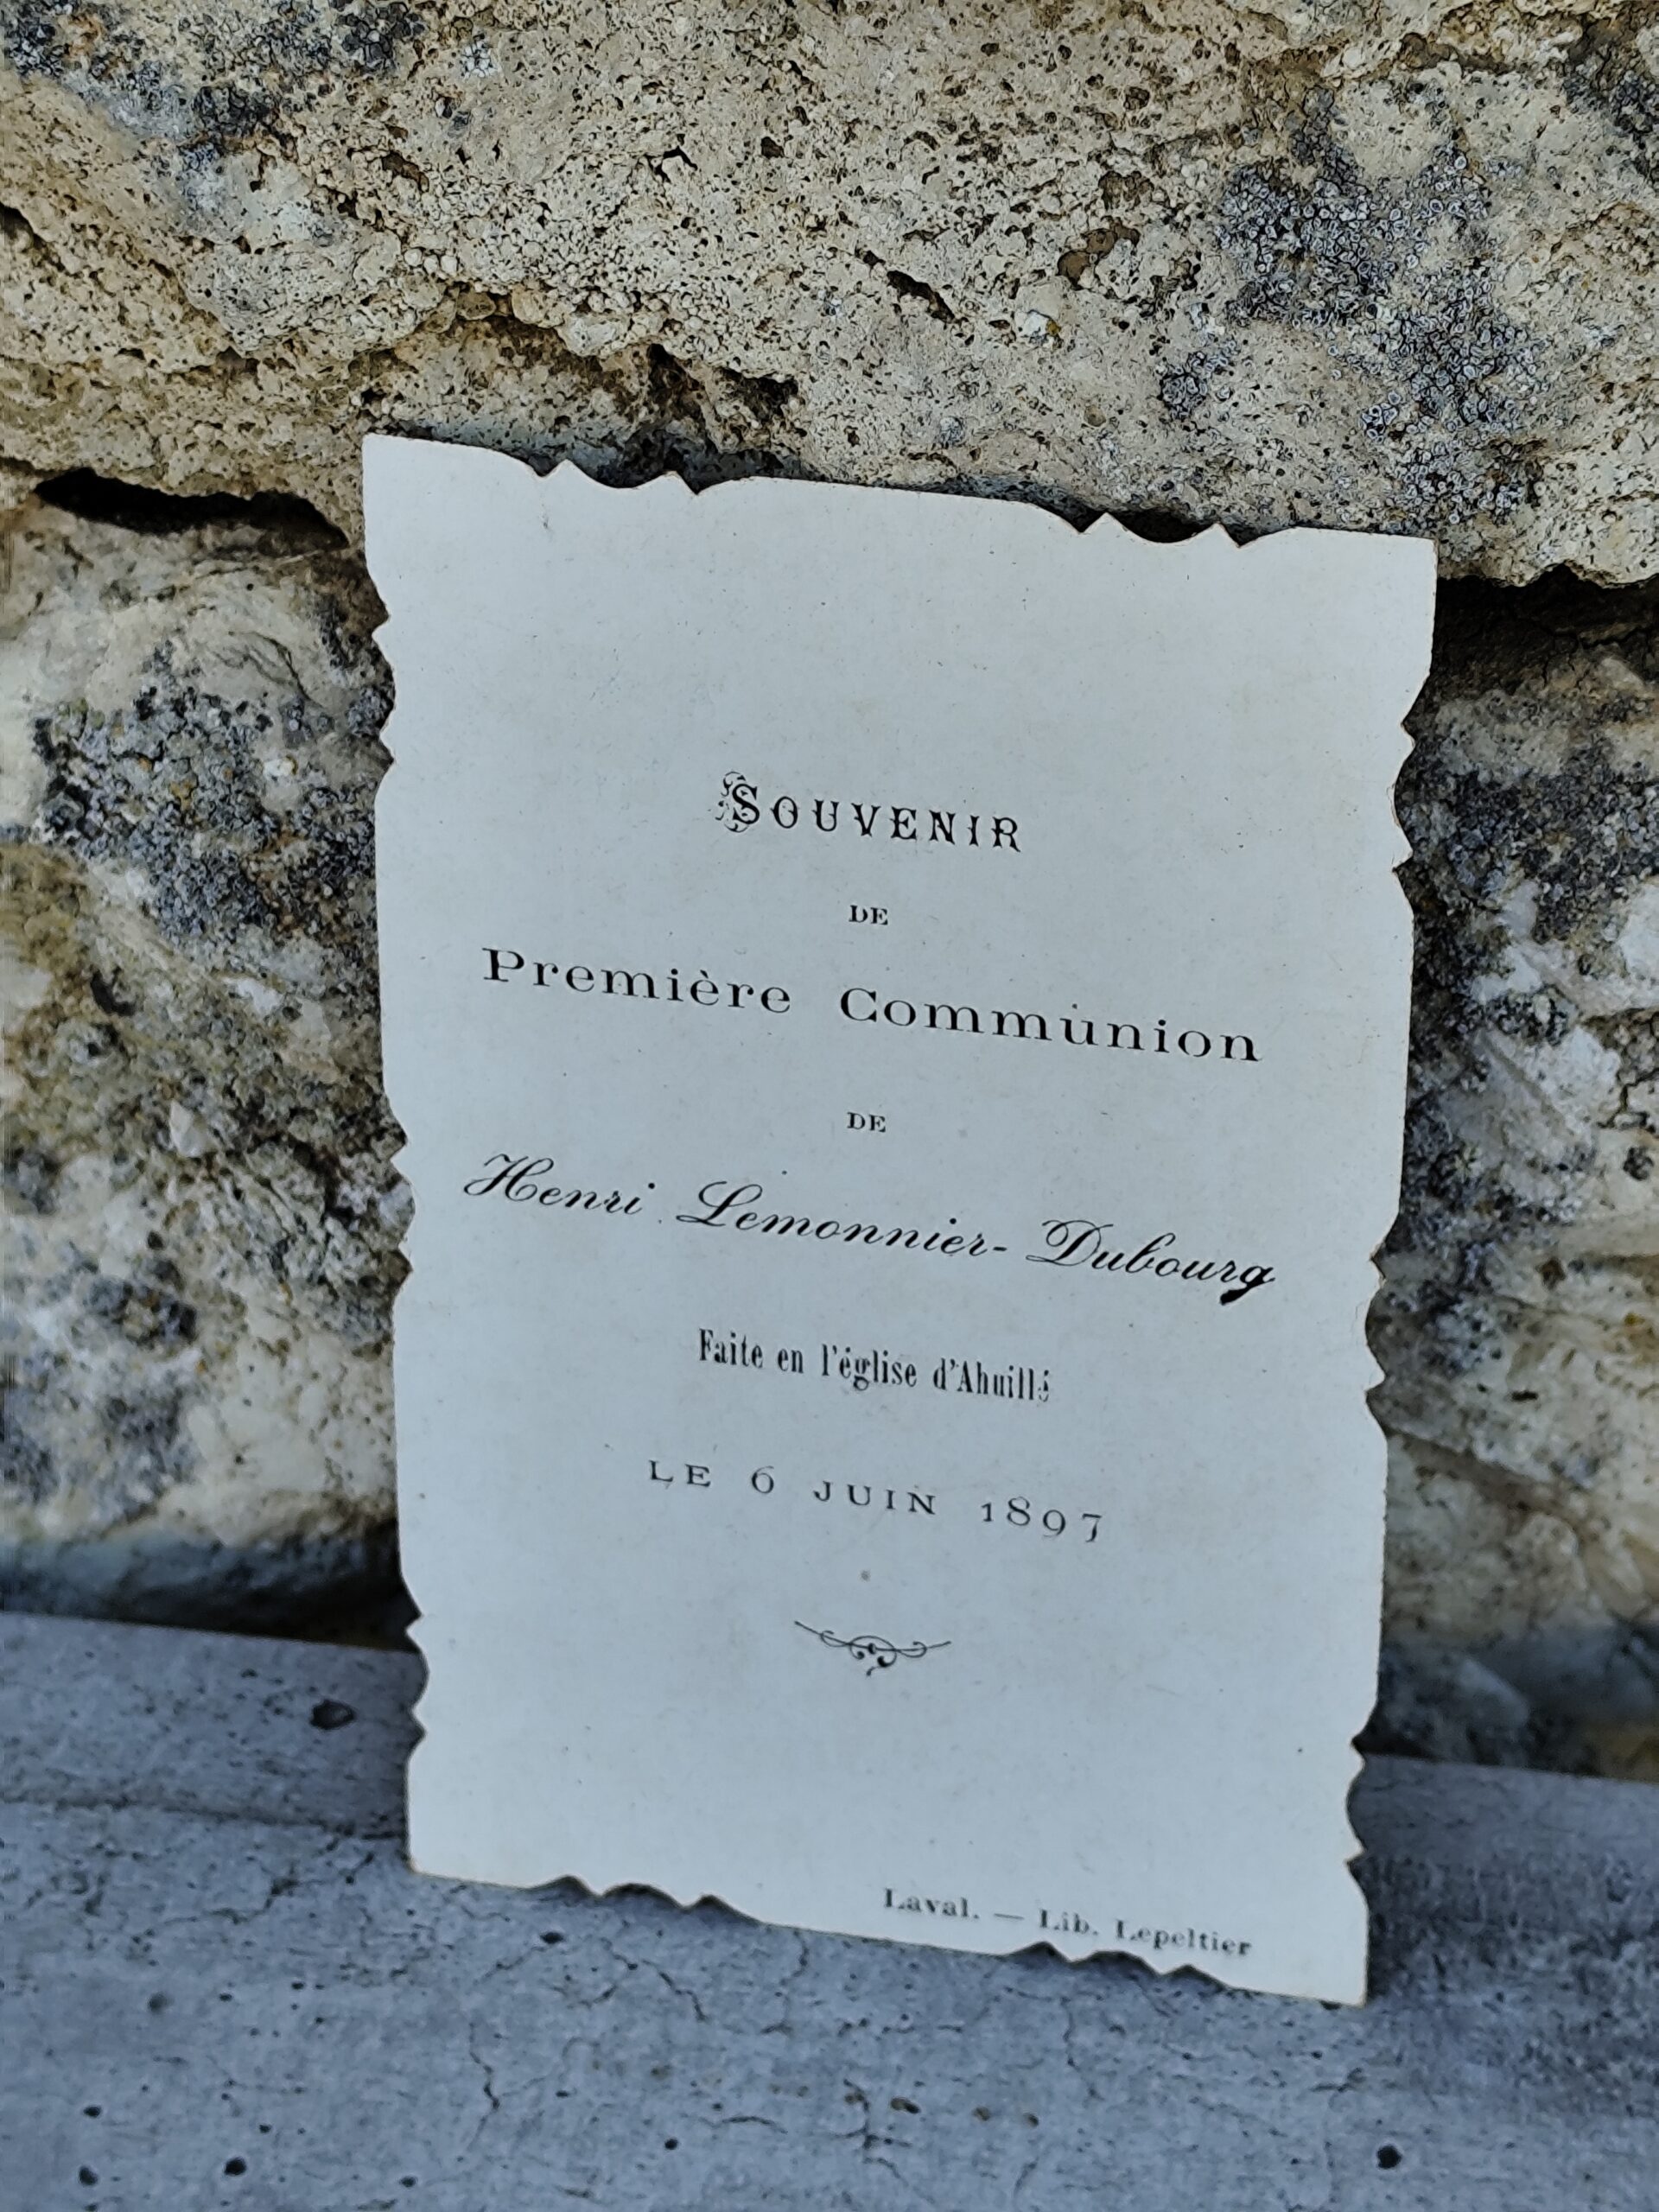 SOUVENIR
DE
Première Communion
DE
Henri Lemonnier-Dubourg
Faite en l'église d'Ahuillé
LE 6 JUIN 1897
Laval. — Lib. Lepeltier